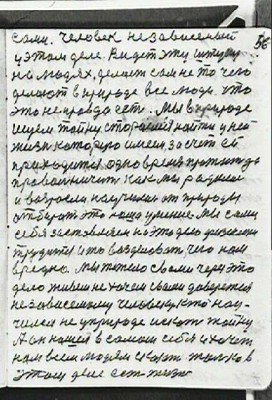 56
сами. Человек независимый
у этом деле. Видет эту штуку
на людях, делает сам не то чего
делают в природе все люди. что
это не правда есть. Мы в природе
ищем тайну стараемся найти у ней
жизн которую имеем, за счет ей
приходится одно время
как мы радыми
и взрослы научилис от природы
отбират это наша умение. Мы сами
себя заставляем на это дело
трудится и что воздействать чего нам
вредно. Мы только своими через это
дело живем не хочем своим доверится
независемому человеку кто нау-
чился не у природе искат тайну
А он нашел в самом себя и хочет
нам всем людям сказат только в
этом деле ест жизн